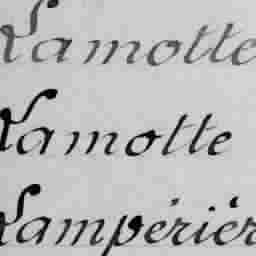 Lamotte
Lamotte
Lampérièr